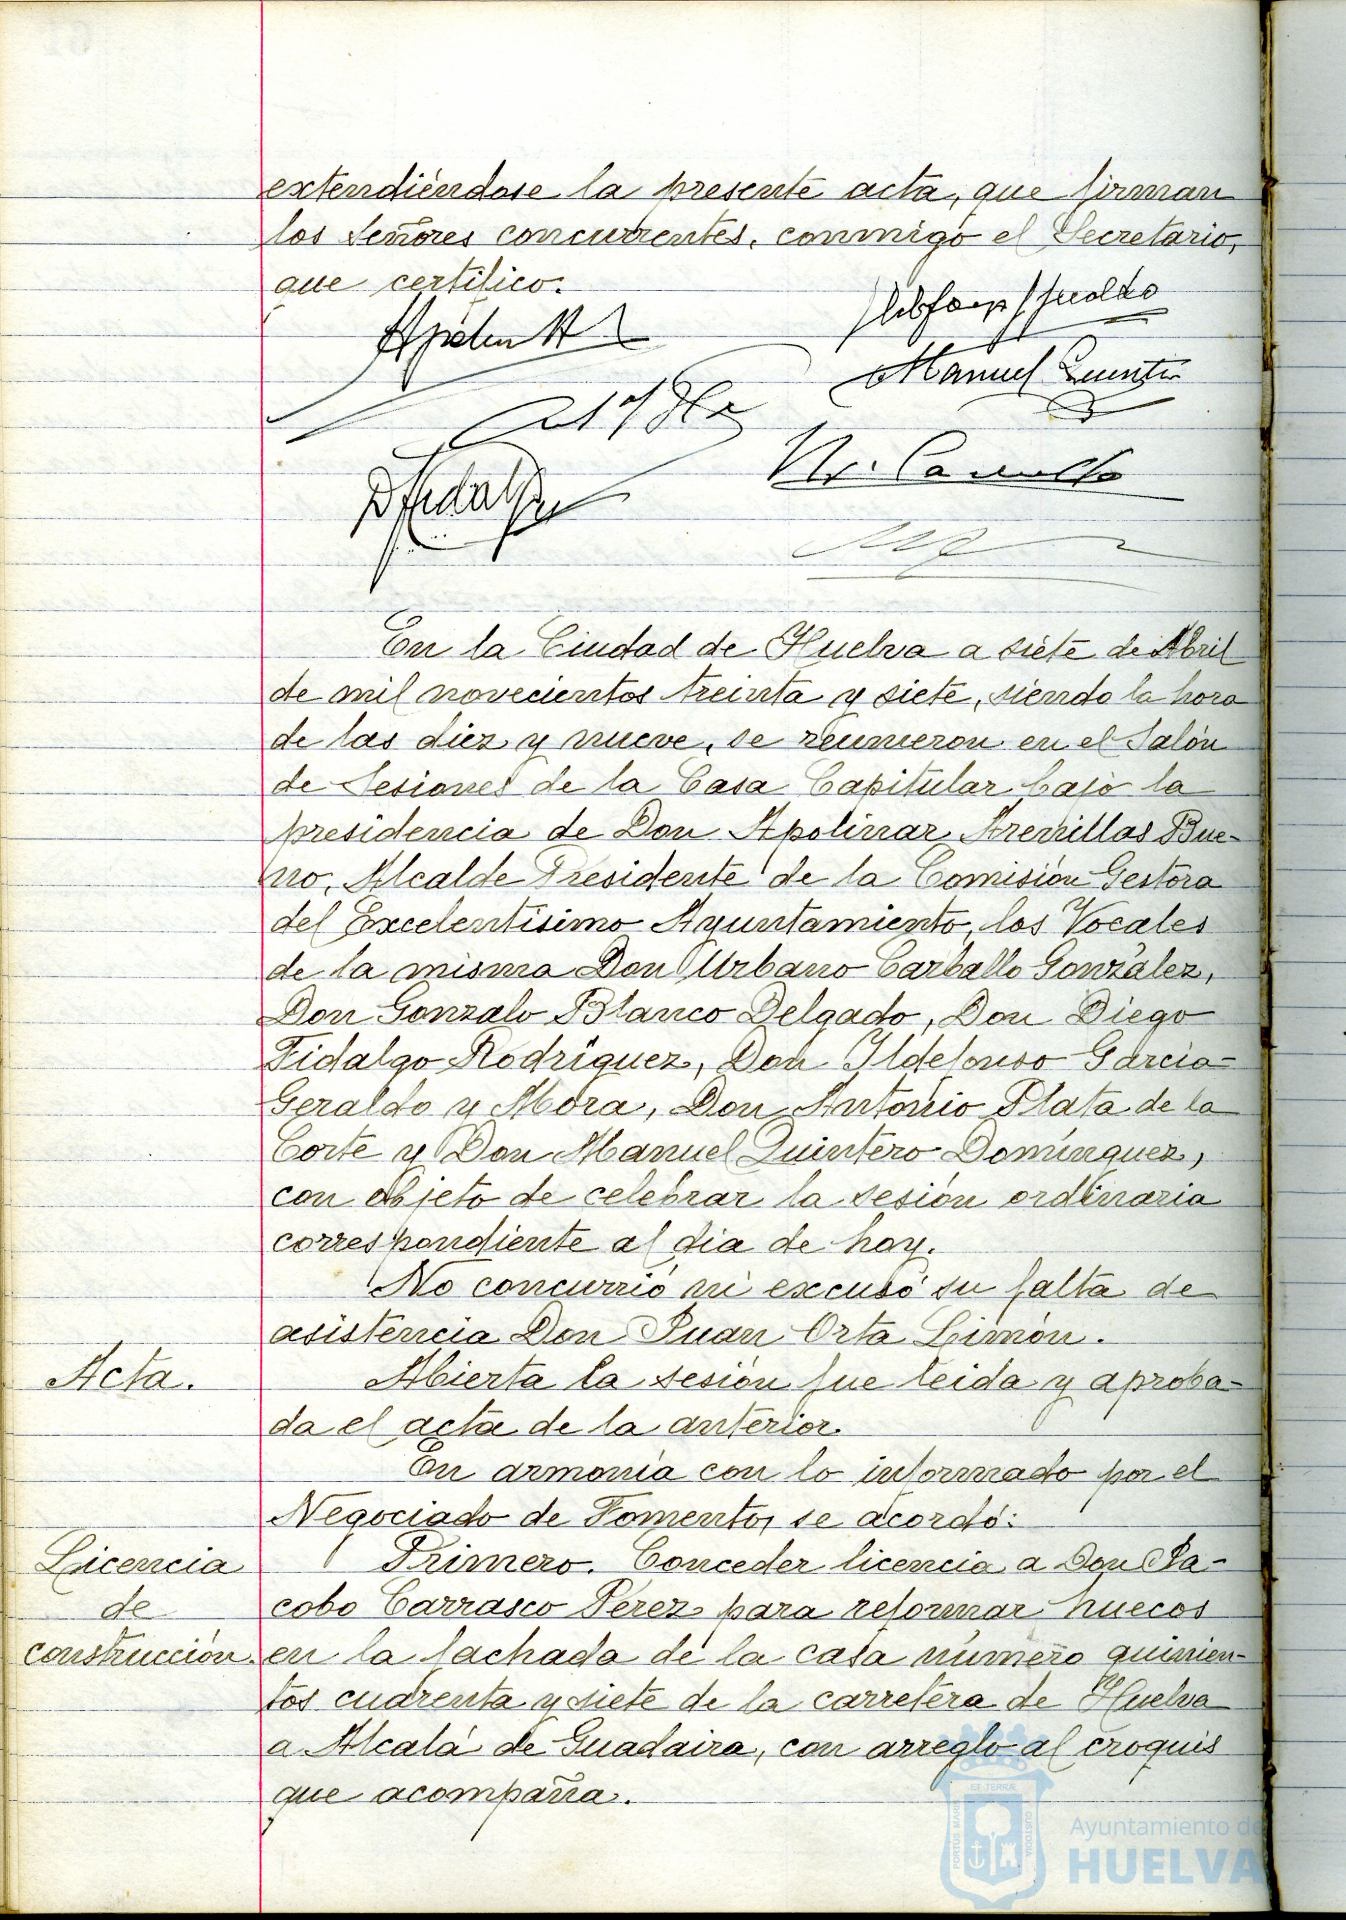 extendiéndose la presente acta, que firman
los Señores concurrentes, conmigo el Secretario,
que certifico.
Manuel Quintero
D Fidalgo
En la Ciudad de Huelva a siete de Abril
de mil novecientos treinta y siete, siendo la hora
de las diez y nueve, se reunieron en el Salón
de Sesiones de la Casa Capitular bajo la
presidencia de Don Apolinar Arenillas Bue-
no, Alcalde Presidente de la Comisión Gestora
del Excelentísimo Ayuntamiento, los Vocales
de la misma Don Urbano Carballo González,
Don Gonzalo Blanco Delgado, Don Diego
Fidalgo Rodríguez, Don Ildefonso García-
Geraldo y Mora, Don Antonio Plata de la
Corte y Don Manuel Quintero Domínguez,
con objeto de celebrar la sesión ordinaria
correspondiente al día de hoy.
No concurrió ni excusó su falta de
asistencia Don Juan Orta Limón.
Acta.
Abierta la sesión fue leida y aproba-
da el acta de la anterior.
En armonía con lo informado por el
Negociado de Fomento, se acordó:
Licencia
de
construcción.
Primero. Conceder licencia a Don Ja-
cobo Carrasco Pérez para reformar huecos
en la fachada de la casa número quinien-
tos cuarenta y siete de la carretera de Huelva
a Alcalá de Guadaira, con arreglo al croquis
que acompaña.
ET TERRÆ
PORTUS MARIS
CUSTODIA
Ayuntamiento de
HUELVA